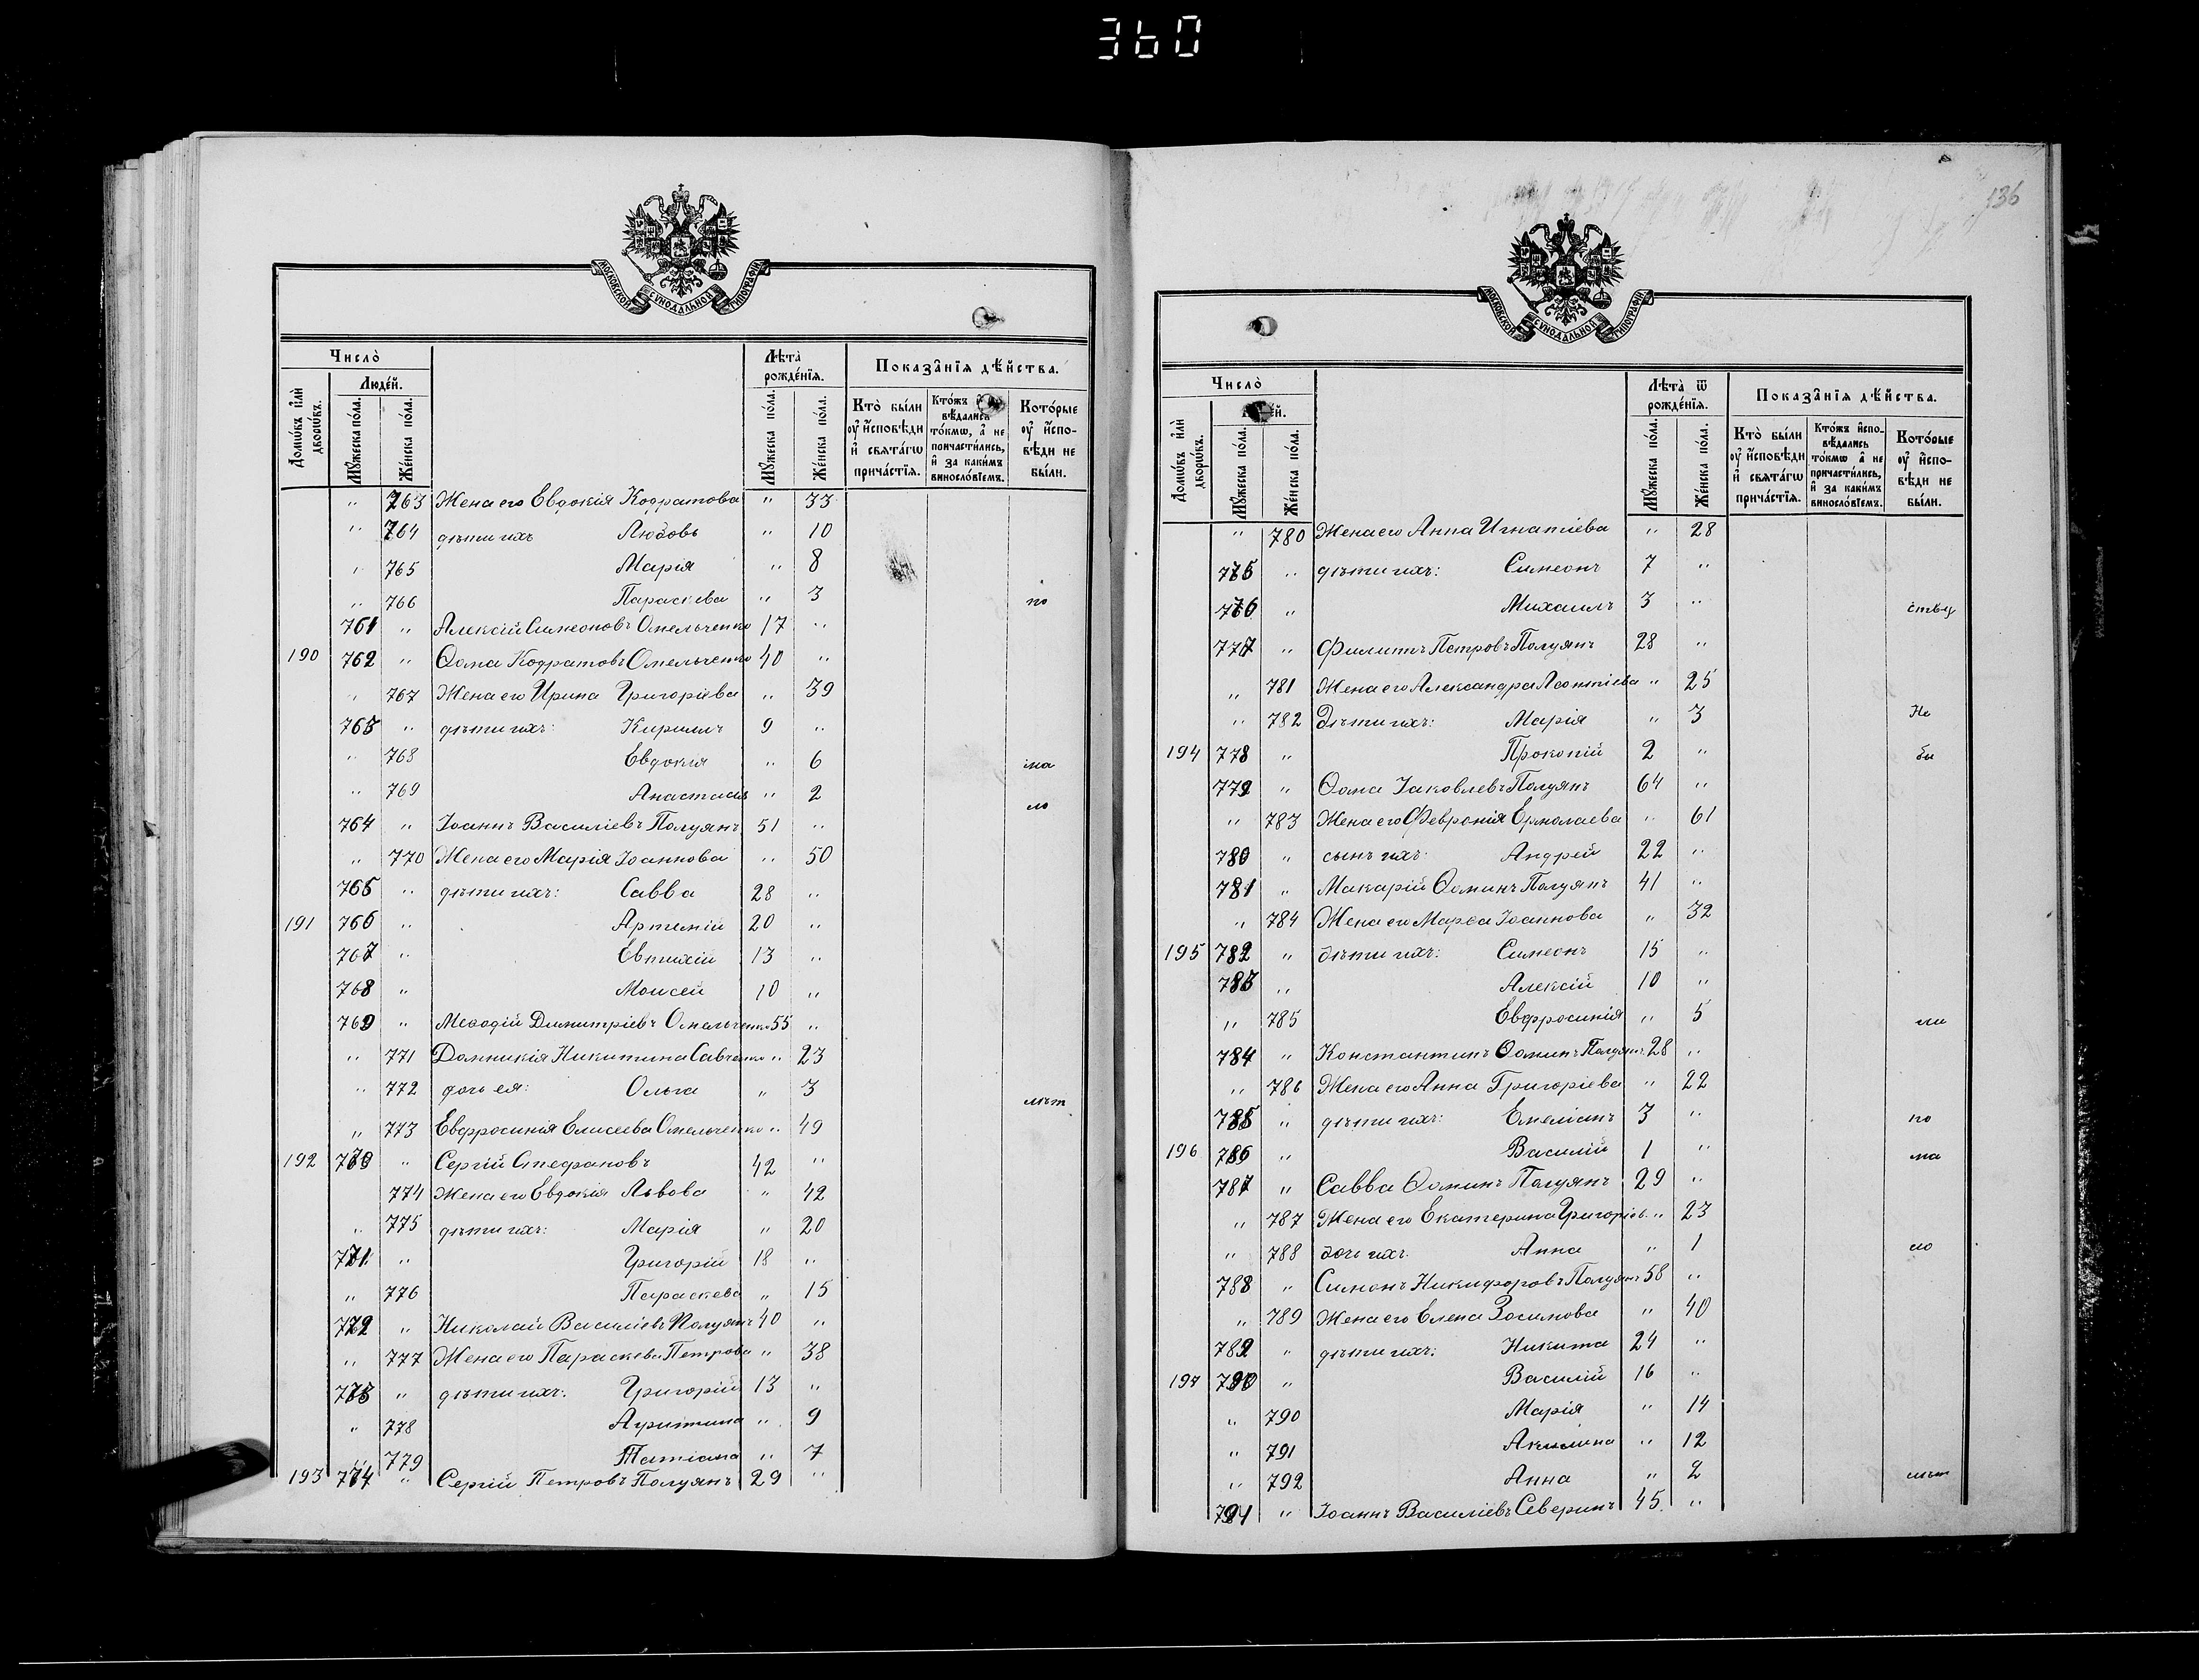 360
МОСКОВСКОЙ СУНОДАЛЬНОЙ ТИПОГРАФІИ
Число̀
Лѣта̀
рожде́нїѧ.
Показа̑нїѧ дѣ́йства.
Люде́й.
Домѡ́въ и҆лѝ дворѡ́въ.
Мꙋ́жеска по́ла.
Же́нска по́ла.
Мꙋ́жеска по́ла.
Же́нска по́ла.
Кто̀ бы́ли ᲂу҆ и҆сповѣ́ди и҆ свѧта́гѡ прича́стїѧ.
Кто́жъ вѣ́дались то́кмѡ, а҆ не причасти́лись, и҆ за каки́мъ виносло́вїемъ.
Кото́рые ᲂу҆ и҆спо-вѣ́ди не бы́ли.
" 763 Жена его Евдокія Кодратова " 33
" 764 дѣти ихъ Любовь " 10
" 765 Марія " 8
" 766 Параскева " 3 по
761 " Алексій Симеоновъ Омельченко 17 "
190 762 " Ѳома Кодратовъ Омельченко 40 "
" 767 Жена его Ирина Григоріева " 39
763 " дѣти ихъ: Кириллъ 9 "
" 768 Евдокія " 6 ма
" 769 Анастасія " 2 ло
764 " Іоаннъ Василіевъ Полуянъ 51 "
" 770 Жена его Марія Іоаннова " 50
765 " дѣти ихъ: Савва 28 "
191 766 " Артемій 20 "
767 " Евтихій 13 "
768 " Моисей 10 "
769 " Меѳодій Димитріевъ Омельченко 55 "
" 771 Домникія Никитина Савченко " 23
" 772 дочь ея: Ольга " 3 лѣт
" 773 Евфросинія Елисеева Омельченко " 49
192 770 " Сергій Стефановъ 42 "
774 Жена его Евдокія Львова " 42
" 775 дѣти ихъ: Марія " 20
771 " Григорій 18 "
" 776 Параскева " 15
772 " Николай Василіевъ Полуянъ 40 "
" 777 Жена его Параскева Петрова " 38
773 " дѣти ихъ: Григорій 13 "
" 778 " 9
" 779 Татіана " 7
193 774 " Сергій Петровъ Полуянъ 29 "
136
МОСКОВСКОЙ СУНОДАЛЬНОЙ ТИПОГРАФІИ
Число̀
Лѣта̀ ѿ
рожде́нїѧ.
Показа̑нїѧ дѣ́йства.
Домѡ́въ и҆лѝ дворѡ́въ.
Мꙋ́жеска по́ла.
Же́нска по́ла.
Мꙋ́жеска по́ла.
Же́нска по́ла.
Кто̀ бы́ли ᲂу҆ и҆сповѣ́ди и҆ свѧта́гѡ прича́стїѧ.
Кто́жъ и҆спо-вѣ́дались то́кмѡ а҆ не причасти́лись, и҆ за каки́мъ виносло́вїемъ.
Кото́рые ᲂу҆ и҆спо-вѣ́ди не бы́ли.
" 780 Жена его Анна Игнатіева " 28
775 " дѣти ихъ: Симеонъ 7 "
776 " Михаилъ 3 " ству
777 " Филиппъ Петровъ Полуянъ 28 "
" 781 Жена его Александра Леонтіева " 25
" 782 Дѣти ихъ: Марія " 3 Не
194 778 " Прокопій 2 " бы
779 " Ѳома Іаковлевъ Полуянъ 64 "
" 783 Жена его Февронія Ермолаева " 61
780 " сынъ ихъ: Андрей 22 "
781 " Макарій Ѳоминъ Полуянъ 41 "
" 784 Жена его Марѳа Іоаннова " 32
195 782 " дѣти ихъ: Симеонъ 15 "
783 " Алексій 10 "
" 785 Евфросинія " 5 ли
784 " Константинъ Ѳоминъ Полуянъ 28 "
" 786 Жена его Анна Григоріева " 22
785 " дѣти ихъ: Емеліанъ 3 " по
196 786 " Василій 1 " ма
787 " Савва Ѳоминъ Полуянъ 29 "
" 787 Жена его Екатерина Григоріев. " 23
" 788 дочь ихъ. Анна " 1 ло
788 " Симонъ Никифоровъ Полуянъ 58 "
" 789 Жена его Елена Зосимова " 40
789 " дѣти ихъ: Никита 24 "
197 790 " Василій 16 "
" 790 Марія " 14
" 791 Акилина " 12
" 792 Анна " 2 лѣт
791 " Іоаннъ Василіевъ Северинъ 45 "